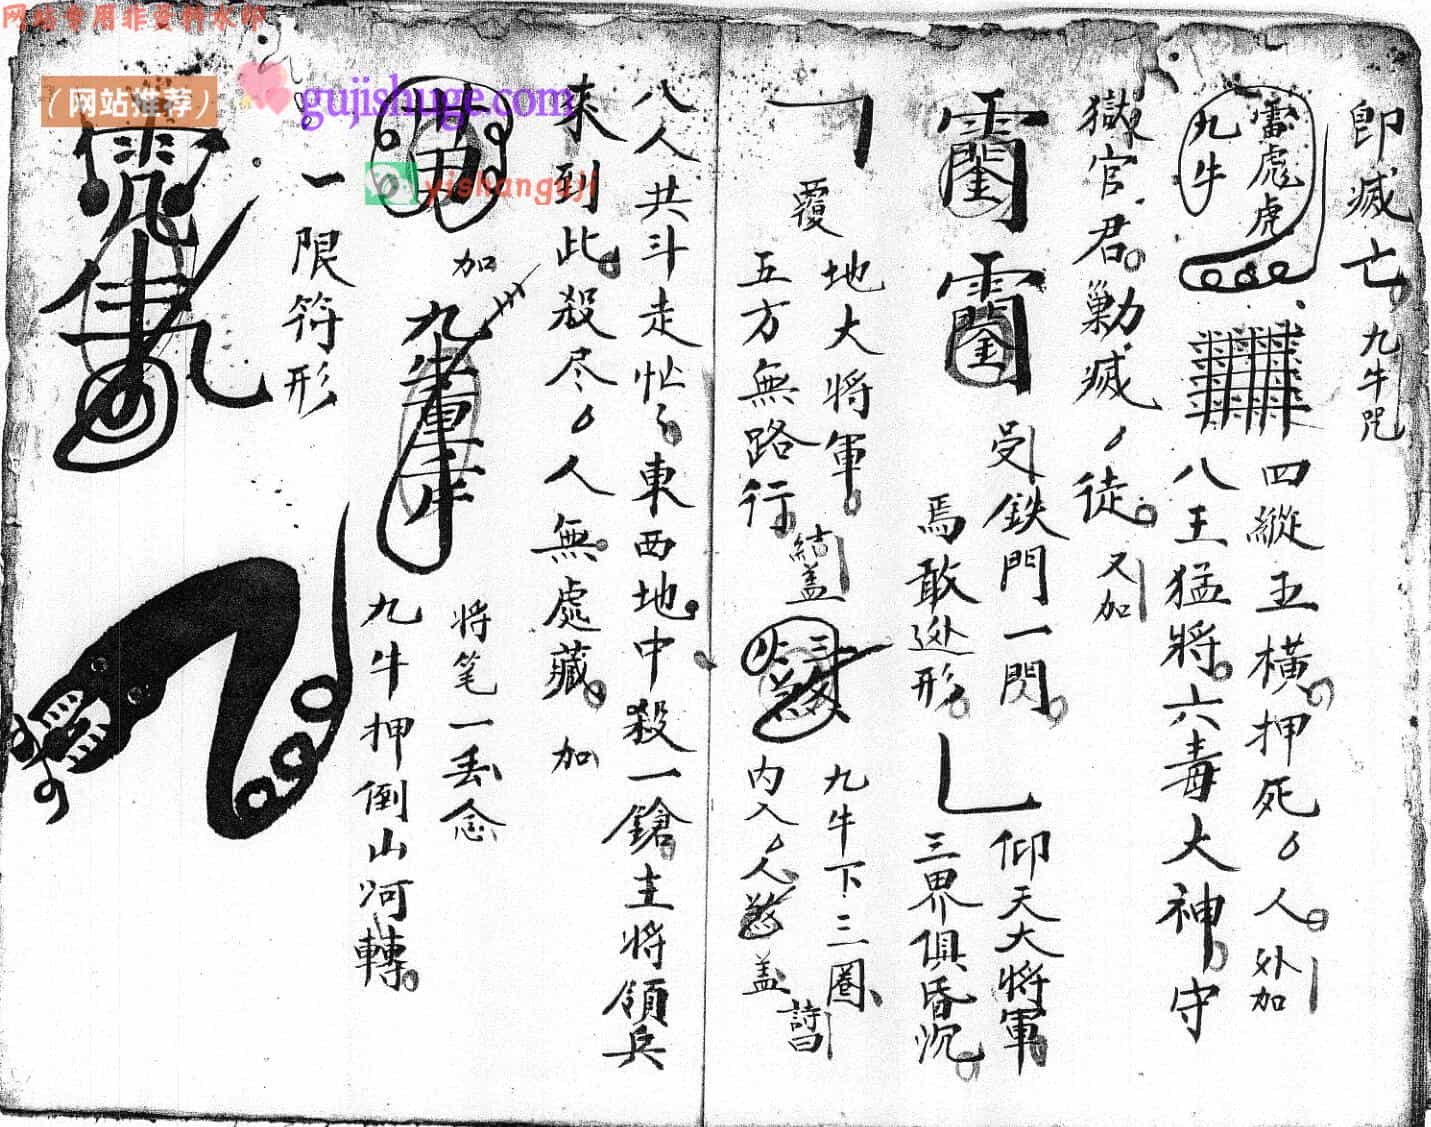 即滅亡九牛咒
雷彪虎
九牛
四縱五橫押死人外加
八王猛將六毒大神守
獄官君勦滅徒又加
受鉄門一閃
焉敢逃形
仰天大將軍
三界俱昏沉
覆
地大将軍
五方無路行
結盖
九牛下三圈
内入人盖
詩曰
八人共斗走忙東西地中殺一鎗主将領兵
来到此殺尽人無處藏加
加
将笔一丢念
九牛押倒山河轉
一限符形
网站专用非资料水印
(网站推荐)
gujishuge.com
yishanguji